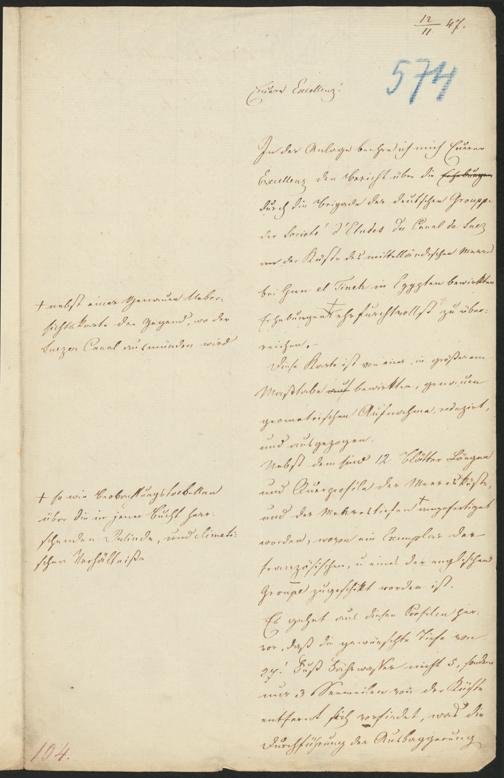 12/11 47.
574
Euere Excellenz!
In der Anlage beehre ich mich Euerer
Excellenz den Bericht über die Erhebungen
durch die Brigade der deutschen Gruppe
der Societé d'Etudes du Canal de Suez
an der Küste des mittelländischen Meeres
bei in Egypten bewirkten
Erhebungen + ehrfurchtvollst zu über-
reichen,-
+ nebst einer genauen Ueber-
sichtskarte der Gegend, wo der
Suezer Canal ausmünden wird
Diese Karte ist von einer, in größerem
Maßstabe auf bewirkten, genauen
geometrischen Aufnahme, reduzirt,
und ausgezogen.
Nebst dem sind 12 Blätter Längen
und Querprofile der Meeresküste,
und der Meerestiefen + angefertiget
worden, wovon ein Exemplar der
französischen, u eines der englischen
Gruppe, zugeschikt worden ist.
+ so wie Beobachtungstabellen
über die in jener Bucht herr-
schenden Winde, und climati-
schen Verhältniße
Es gehet aus diesen Profilen her-
vor, daß die gewünschte Tiefe von
Fuß nicht 5, sondern
nur 3 Seemeilen von der Küste
entfernt sich vorfindet, was die
Durchführung der Ausbaggerung
104.